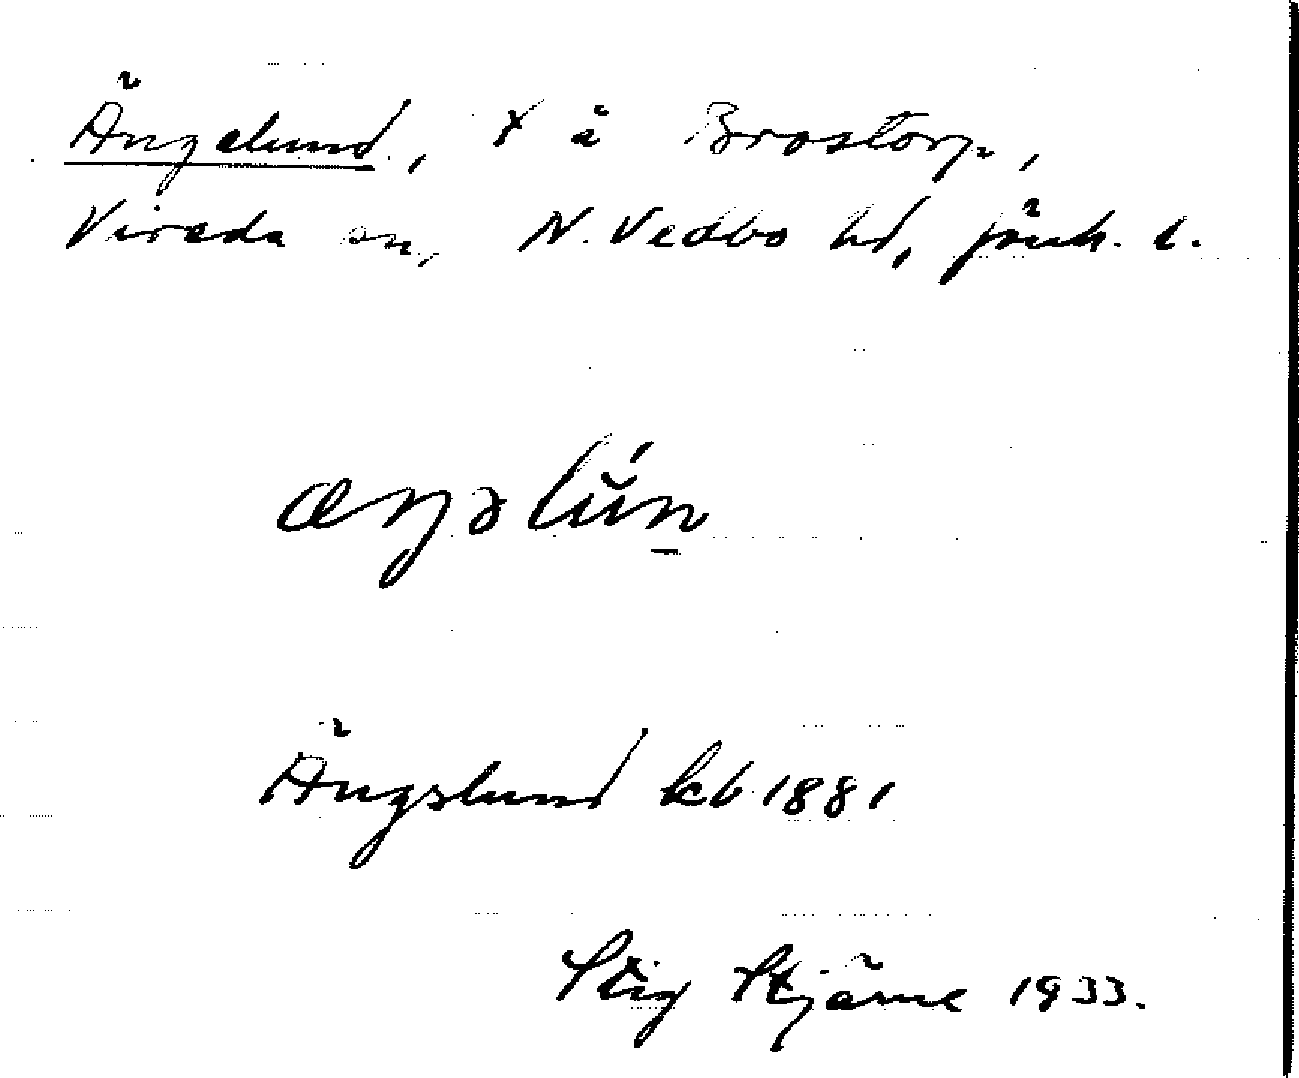 Ängelund, x å Brostorp,
Vireda sn, N. Vedbo hd, Jönk. l.
æŋəlún
Ängslund kb 1881
Stig Stjärne 1933.